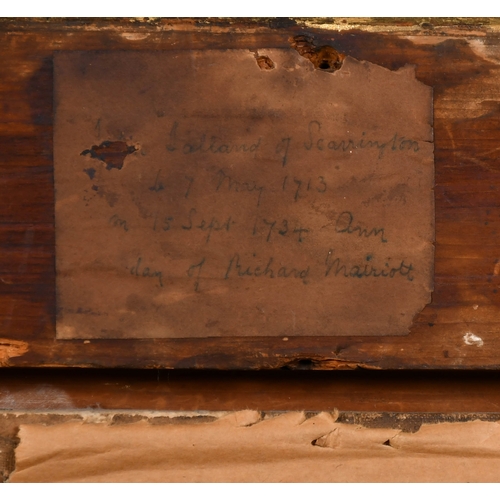 Holland of Scarrington
b 7 May 1713
m 15 Sept 1734 Ann
day of Richard Marriott